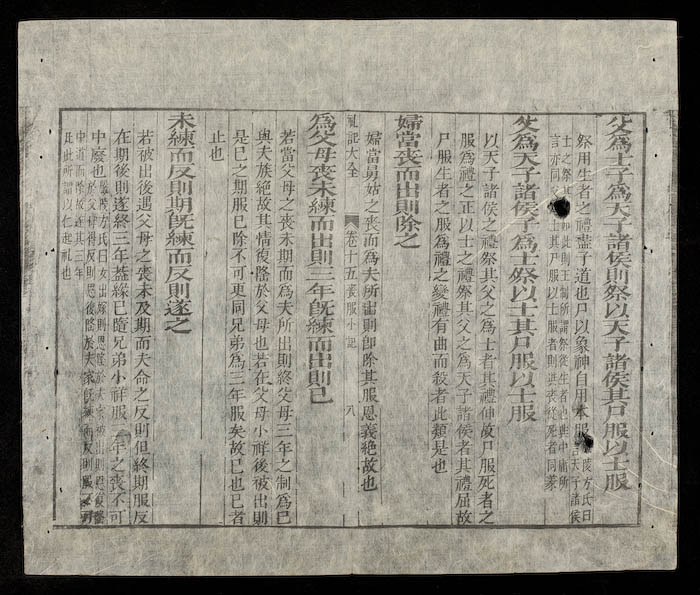 父爲士子爲天子諸侯則祭以天子諸侯其尸服以士服
祭用生者之禮盡子道也尸以象神自用本服
嚴陵方氏曰
天子諸侯
士之祭其
如此則王制所謂祭從生者也與中庸所
言亦同父
士其尸服以士服者則
從死者同蒙
父爲天子諸侯子爲士祭以士其尸服以士服
以天子諸侯之禮祭其父之爲士者其禮伸故尸服死者之
服爲禮之正以士之禮祭其父之爲天子諸侯者其禮屈故
尸服生者之服爲禮之變禮有曲而殺者此類是也
婦當喪而出則除之
婦當舅姑之喪而爲夫所出則卽除其服恩義絶故也
禮記大全 卷十五喪服小記 八
爲父母喪未練而出則三年旣練而出則已
若當父母之喪未期而爲夫所出則終父母三年之制爲已
與夫族絶故其情復隆於父母也若在父母小祥後被出則
是已之期服已除不可更同兄弟爲三年服矣故已也已者
止也
未練而反則期旣練而反則遂之
若被出後遇父母之喪未及期而夫命之反則但終期服反
在期後則遂終三年蓋緣已隨兄弟小祥服三年之喪不可
中廢也
嚴陵方氏曰女出嫁則恩隆於夫家被出則恩復隆
於父母得反則恩復隆於夫家旣練而反則服
中道而除故遂其三年
也此所謂以仁起禮也